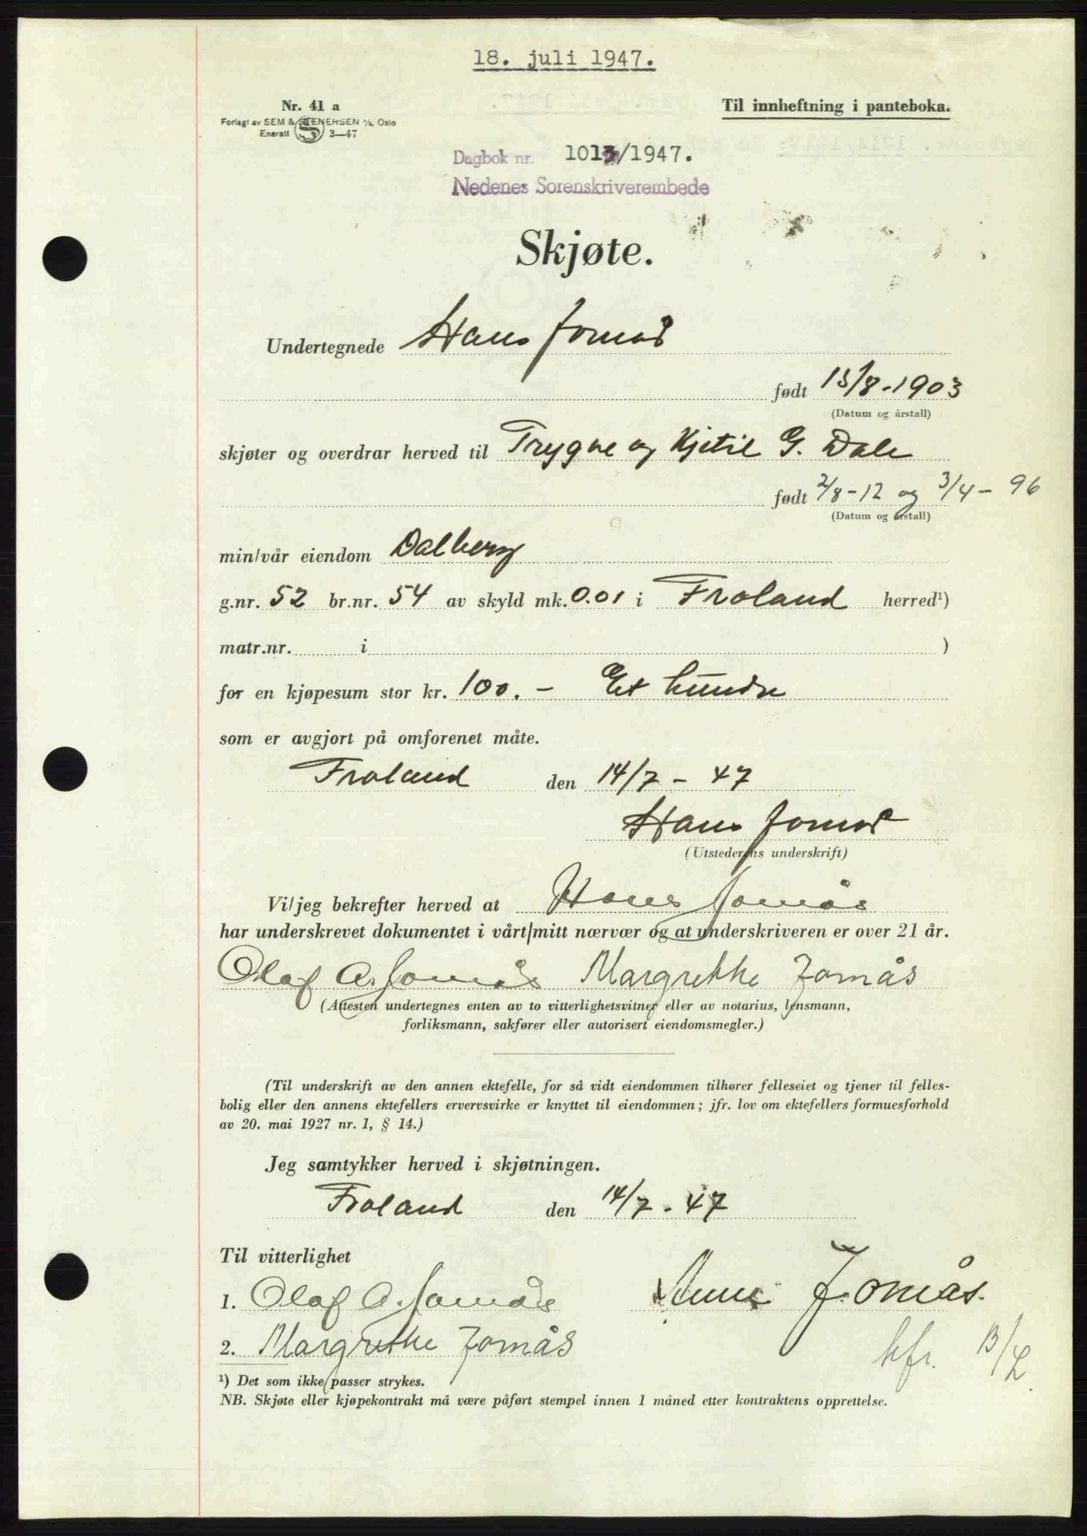 18. juli 1947.
Nr. 41 a
Til innheftning i panteboka.
Forlagt av SEM & STENERSEN A/S, Oslo
Enerett S 3—47
Dagbok nr. 1013/1947.
Nedenes Sorenskriverembede
Skjøte.
Undertegnede Hans Jomås
født 13/8-1903
(Datum og årstall)
skjøter og overdrar herved til Trygve og Kjetil G. Dale
født 2/8-12 og 3/4-96
(Datum og årstall)
min/vår eiendom Dalberg
g.nr. 52 br.nr. 54 av skyld mk. 0.01 i Froland herred¹)
matr.nr. i )
for en kjøpesum stor kr. 100.- Et hundre
som er avgjort på omforenet måte.
Froland den 14/7-47
Hans Jomås
(Utstederens underskrift)
Vi/jeg bekrefter herved at Hans Jomås
har underskrevet dokumentet i vårt/mitt nærvær og at underskriveren er over 21 år.
Olaf A. Jomås Margrethe Jomås
(Attesten undertegnes enten av to vitterlighetsvitner eller av notarius, lensmann,
forliksmann, sakfører eller autorisert eiendomsmegler.)
(Til underskrift av den annen ektefelle, for så vidt eiendommen tilhører felleseiet og tjener til felles-
bolig eller den annens ektefellers ervervsvirke er knyttet til eiendommen; jfr. lov om ektefellers formuesforhold
av 20. mai 1927 nr. 1, § 14.)
Jeg samtykker herved i skjøtningen.
Froland den 14/7-47
Til vitterlighet
1. Olaf A. Jomås Anne Jomås.
2. Margrethe Jomås
¹) Det som ikke passer strykes.
NB. Skjøte eller kjøpekontrakt må være påført stempel innen 1 måned etter kontraktens opprettelse.